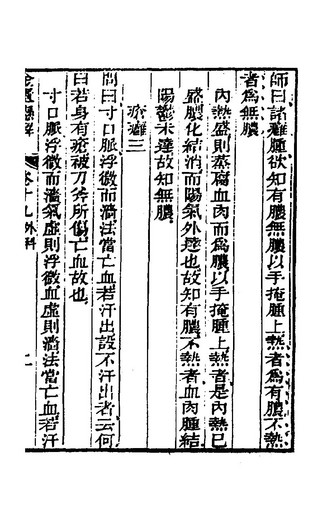 師曰諸癰腫欲知有膿無膿以手掩腫上熱者為有膿不熱
者為無膿
內熱盛則蒸腐血肉而為膿以手掩腫上熱者是內熱已
盛膿化結消而陽氣外達也故知有膿不熱者血肉腫結
陽鬱未達故知無膿
瘡癰三
問曰寸口脈浮微而濇法當亡血若汗出設不汗出者云何
曰若身有瘡被刀斧所傷亡血故也
寸口脈浮微而濇氣虛則浮微血虛則濇法當亡血若汗
金匱懸解 卷十九外科